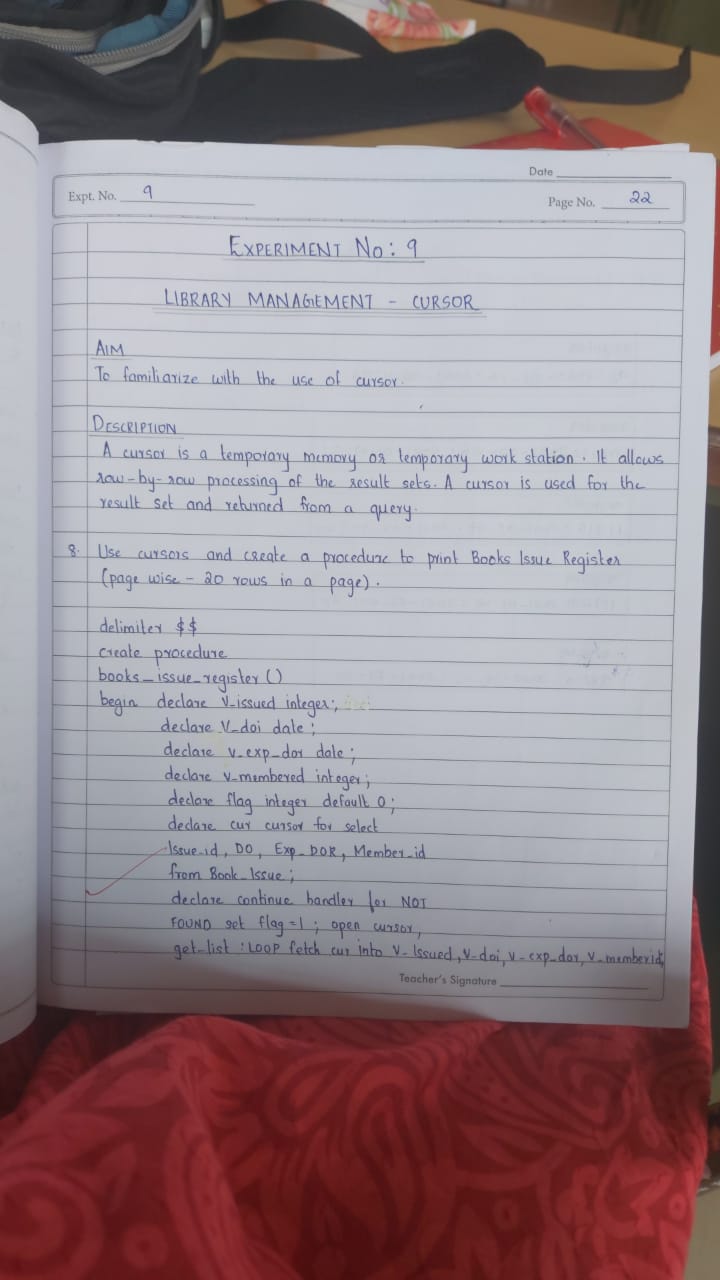 Date
Expt. No. 9
Page No. 22
EXPERIMENT No: 9
LIBRARY MANAGEMENT - CURSOR
AIM
To familiarize with the use of cursor.
DESCRIPTION
A cursor is a temporary memory or temporary work station. It allows
row-by-row processing of the result sets. A cursor is used for the
result set and returned from a query.
8. Use cursors and create a procedure to print Books Issue Register
(page wise - 20 rows in a page).
delimiter $$
create procedure
books_issue_register ()
begin declare V_issued integer;
declare V_doi date;
declare v_exp_dor date;
declare v_membered integer;
declare flag integer default 0;
declare cur cursor for select
Issue_id, DO, Exp_DOR, Member_id
from Book_Issue;
declare continue handler for NOT
FOUND set flag=1; open cursor,
get_list : LOOP fetch cur into V_Issued, V_doi, v_exp_dor, V_memberid,
Teacher's Signature